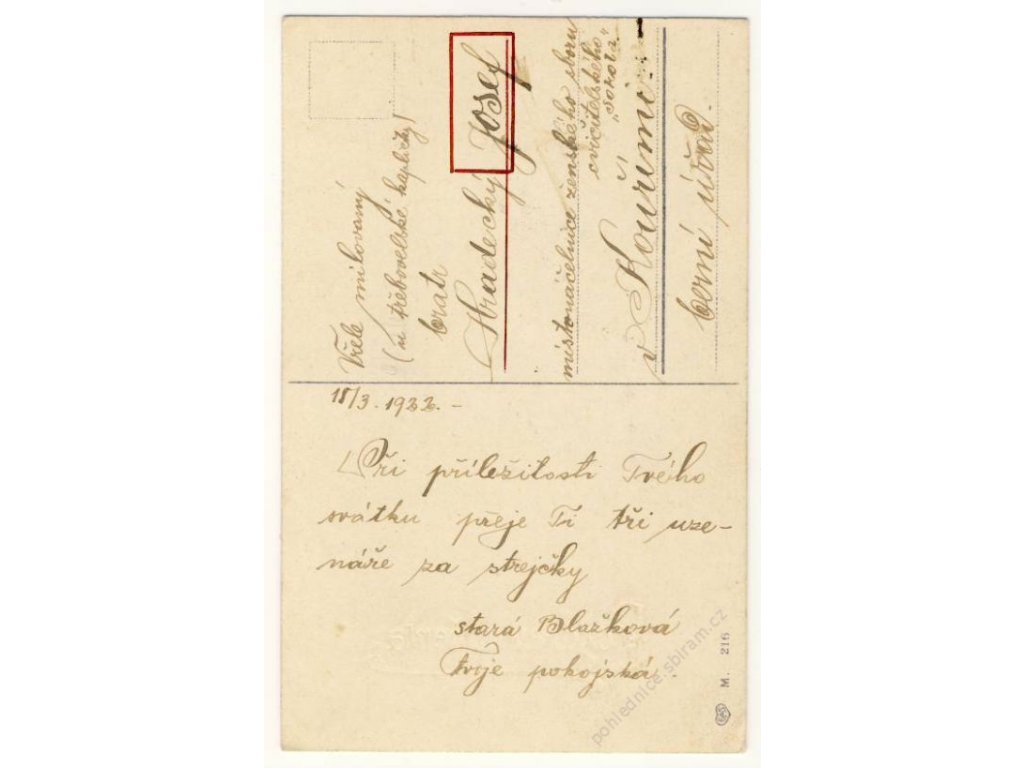 Vřele milovaný
(u třebovelské kapličky)
bratr
Hradecký Josef
místonáčelnice ženského sboru
cvičitelského
„Sokola“
v Kouřimi
berní úřad.
18/3. 1922. -
Při příležitosti Tvého
svátku přeje Ti tři uze-
náře za strejčky
stará Blažková
Tvoje pokojská.
M. 216
pohlednice.sbiram.cz